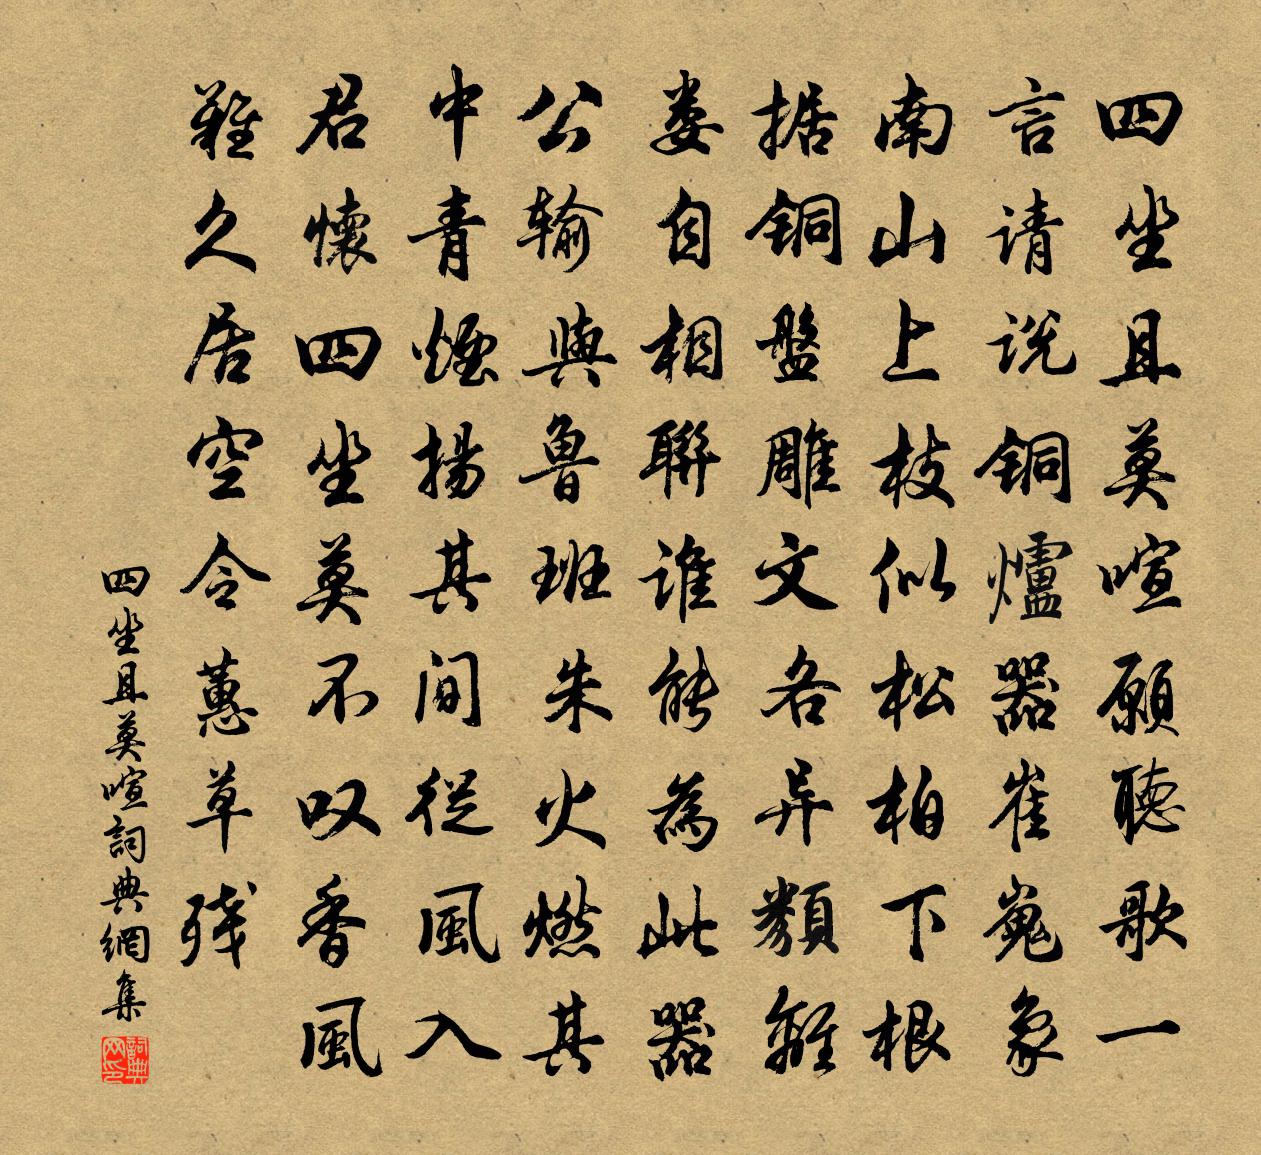 四坐且莫喧願聽歌一
言请说铜爐器崔嵬象
南山上枝似松柏下根
据铜盤雕文各异類離
娄自相聯谁能為此器
公输與鲁班朱火燃其
中青煙揚其间從風入
君懷四坐莫不叹香風
難久居空令蕙草残
四坐且莫喧詞典網集
詞典
网印